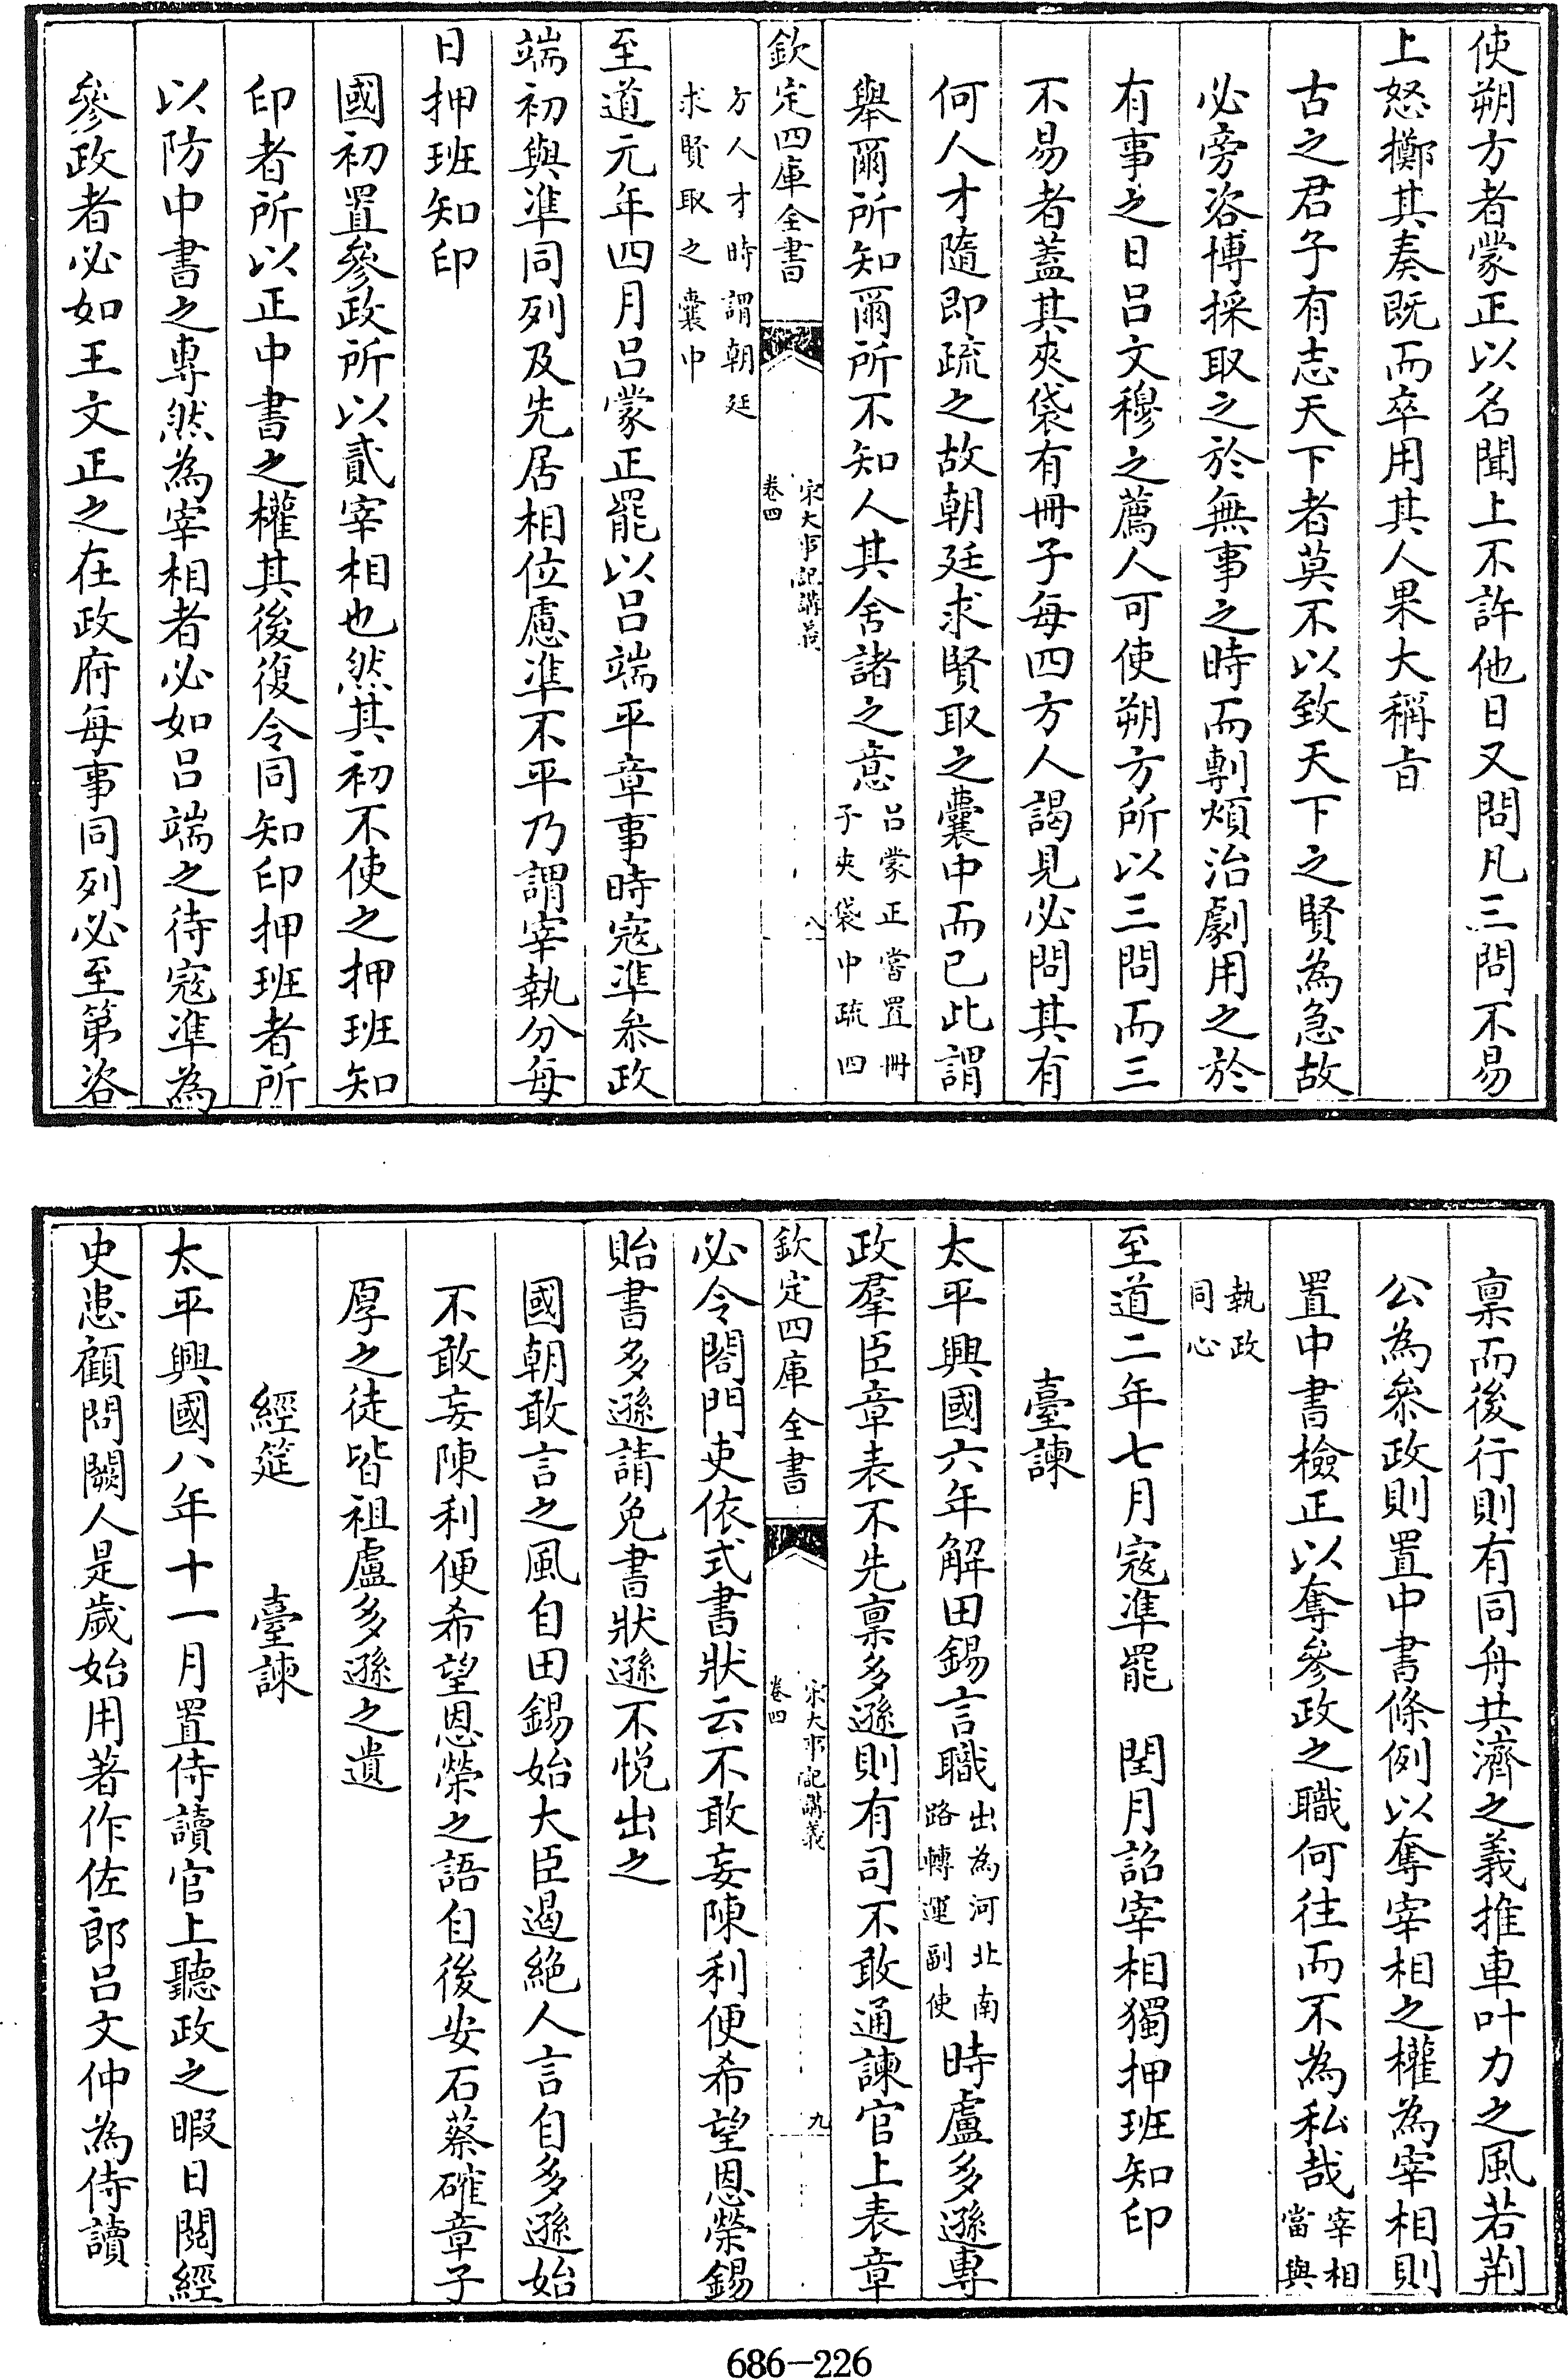 使朔方者蒙正以名聞上不許他日又問凡三問不易
上怒擲其奏既而卒用其人果大稱旨
古之君子有志天下者莫不以致天下之賢為急故
必旁咨博採取之於無事之時而剸煩治劇用之於
有事之日吕文穆之薦人可使朔方所以三問而三
不易者蓋其夾袋有冊子每四方人謁見必問其有
何人才隨即疏之故朝廷求賢取之囊中而已此謂
舉爾所知爾所不知人其舍諸之意吕蒙正嘗置冊子夾袋中疏四
欽定四庫全書
宋大事記講義
卷四
八
方人才時謂朝廷求賢取之囊中
至道元年四月吕蒙正罷以吕端平章事時寇凖叅政
端初與凖同列及先居相位慮凖不平乃謂宰執分每
日押班知印
國初置參政所以貳宰相也然其初不使之押班知
印者所以正中書之權其後復令同知印押班者所
以防中書之專然為宰相者必如吕端之待寇凖為
參政者必如王文正之在政府每事同列必至第咨
稟而後行則有同舟共濟之義推車叶力之風若荆
公為叅政則置中書條例以奪宰相之權為宰相則
置中書檢正以奪參政之職何往而不為私哉宰相當與
執政同心
至道二年七月寇凖罷　閏月詔宰相獨押班知印
臺諫
太平興國六年解田錫言職出為河北南路轉運副使時盧多遜專
政羣臣章表不先稟多遜則有司不敢通諫官上表章
欽定四庫全書
宋大事記講義
卷四
九
必令閤門吏依式書狀云不敢妄陳利便希望恩榮錫
貽書多遜請免書狀遜不悦出之
國朝敢言之風自田錫始大臣遏絶人言自多遜始
不敢妄陳利便希望恩榮之語自後安石蔡確章子
厚之徒皆祖盧多遜之遺
經筵　臺諫
太平興國八年十一月置侍讀官上聽政之暇日閲經
史患顧問闕人是歲始用著作佐郎吕文仲為侍讀
686-226